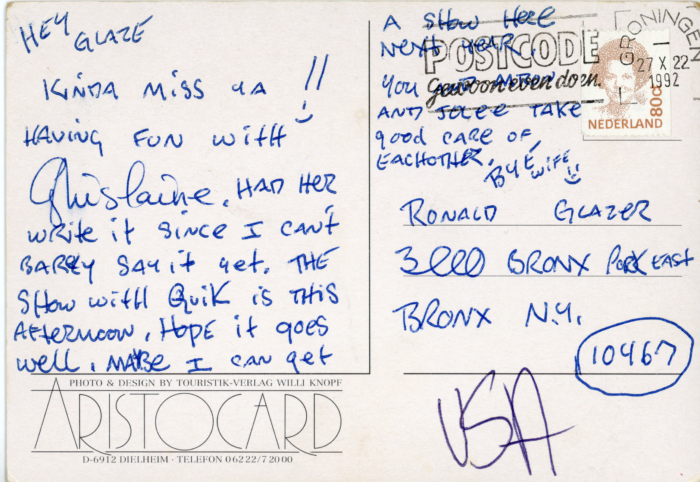 HEY GLAZE
KINDA MISS YA !!
HAVING FUN WITH
Ghislaine. HAD HER
WRITE it SINCE I CAN'T
BARELY SAY it yet. THE
SHOW WITH QUIK IS THIS
AFTERNOON. HOPE it goes
well. MAYBE I CAN get
A SHOW HERE
NEXT YEAR.
YOU
AND TAKE
good CARE OF
EACHOTHER.
BYE WIFE
RONALD GLAZER
3000 BRONX PARK EAST
BRONX N.Y.
10467
USA
POSTCODE
Gewoon even doen.
GRONINGEN
27 X 22
1992
80c
NEDERLAND
PHOTO & DESIGN BY TOURISTIK-VERLAG WILLI KNOPF
ARISTOCARD
D-6912 DIELHEIM · TELEFON 06222/72000